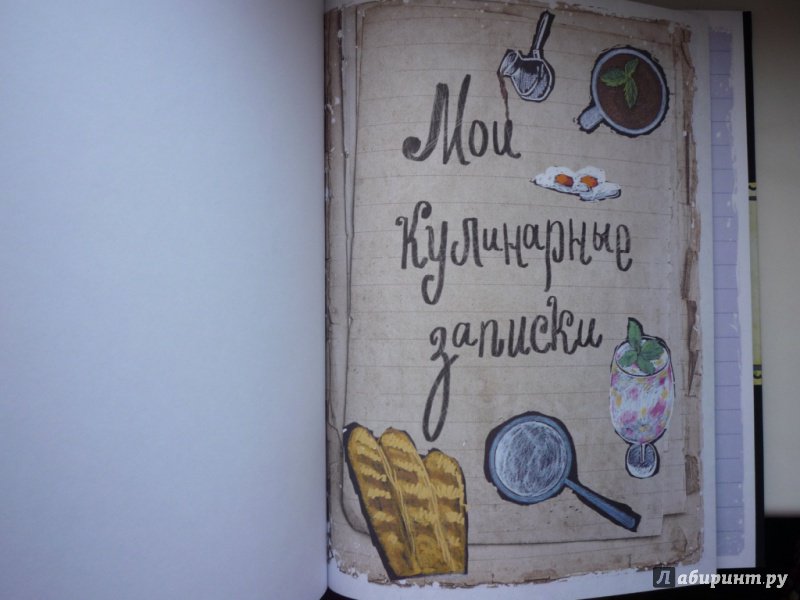 Мои
Кулинарные
записки
Лабиринт.ру